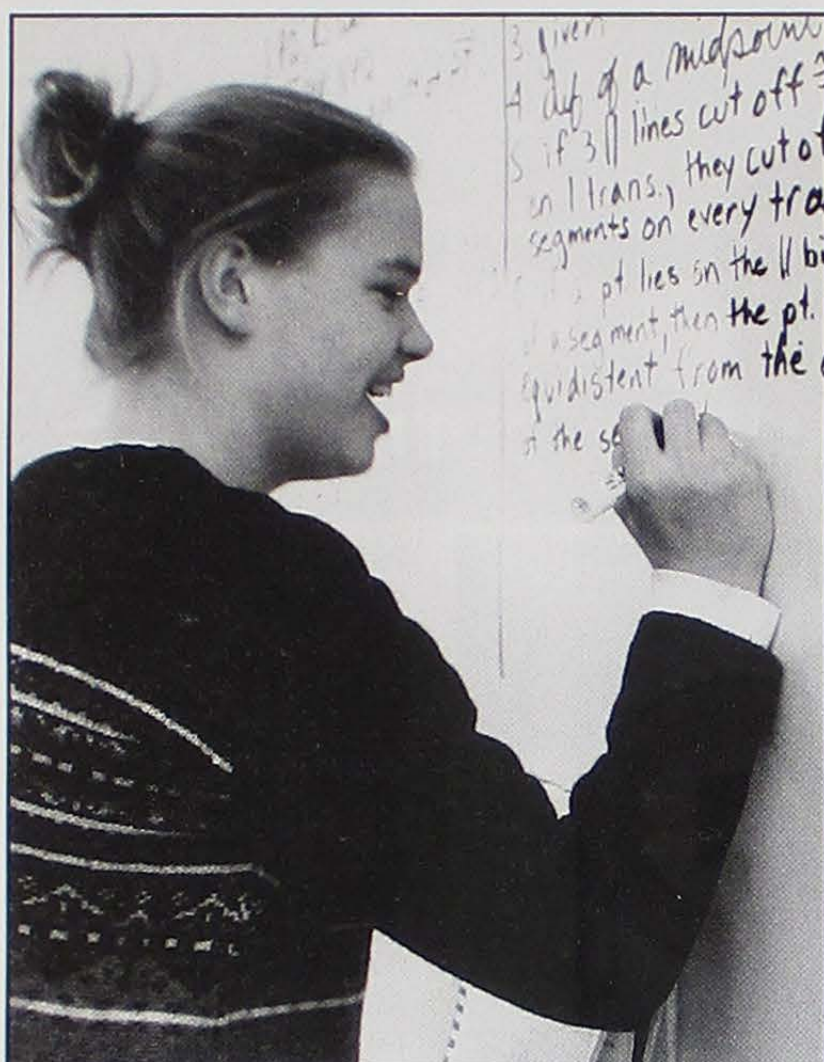 3. given
4 def of a midpoint
5 if 3 || lines cut off ≅
on 1 trans., they cut of
segments on every tra
pt lies on the || bi
of a segment, then the pt.
equidistent from the
of the se